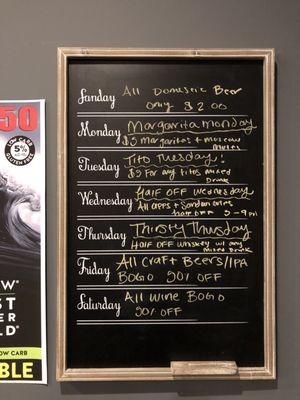 50
LOW CARB
5%
GLUTEN FREE
LOW CARB
Sunday All Domestic Beer
only $2.00
Monday Margarita Monday
$5 Margaritas + Moscow
Mules
Tuesday Tito Tuesday!
$5 For any titos mixed
Drink
Wednesday Half OFF Wednesday
All apps +
Half OFF 5-9PM
Thursday Thirsty Thursday
Half OFF whiskey w/ any
mixed Drink
Friday All Craft Beers/IPA
BOGO 50% OFF
Saturday All Wine BOGO
50% OFF